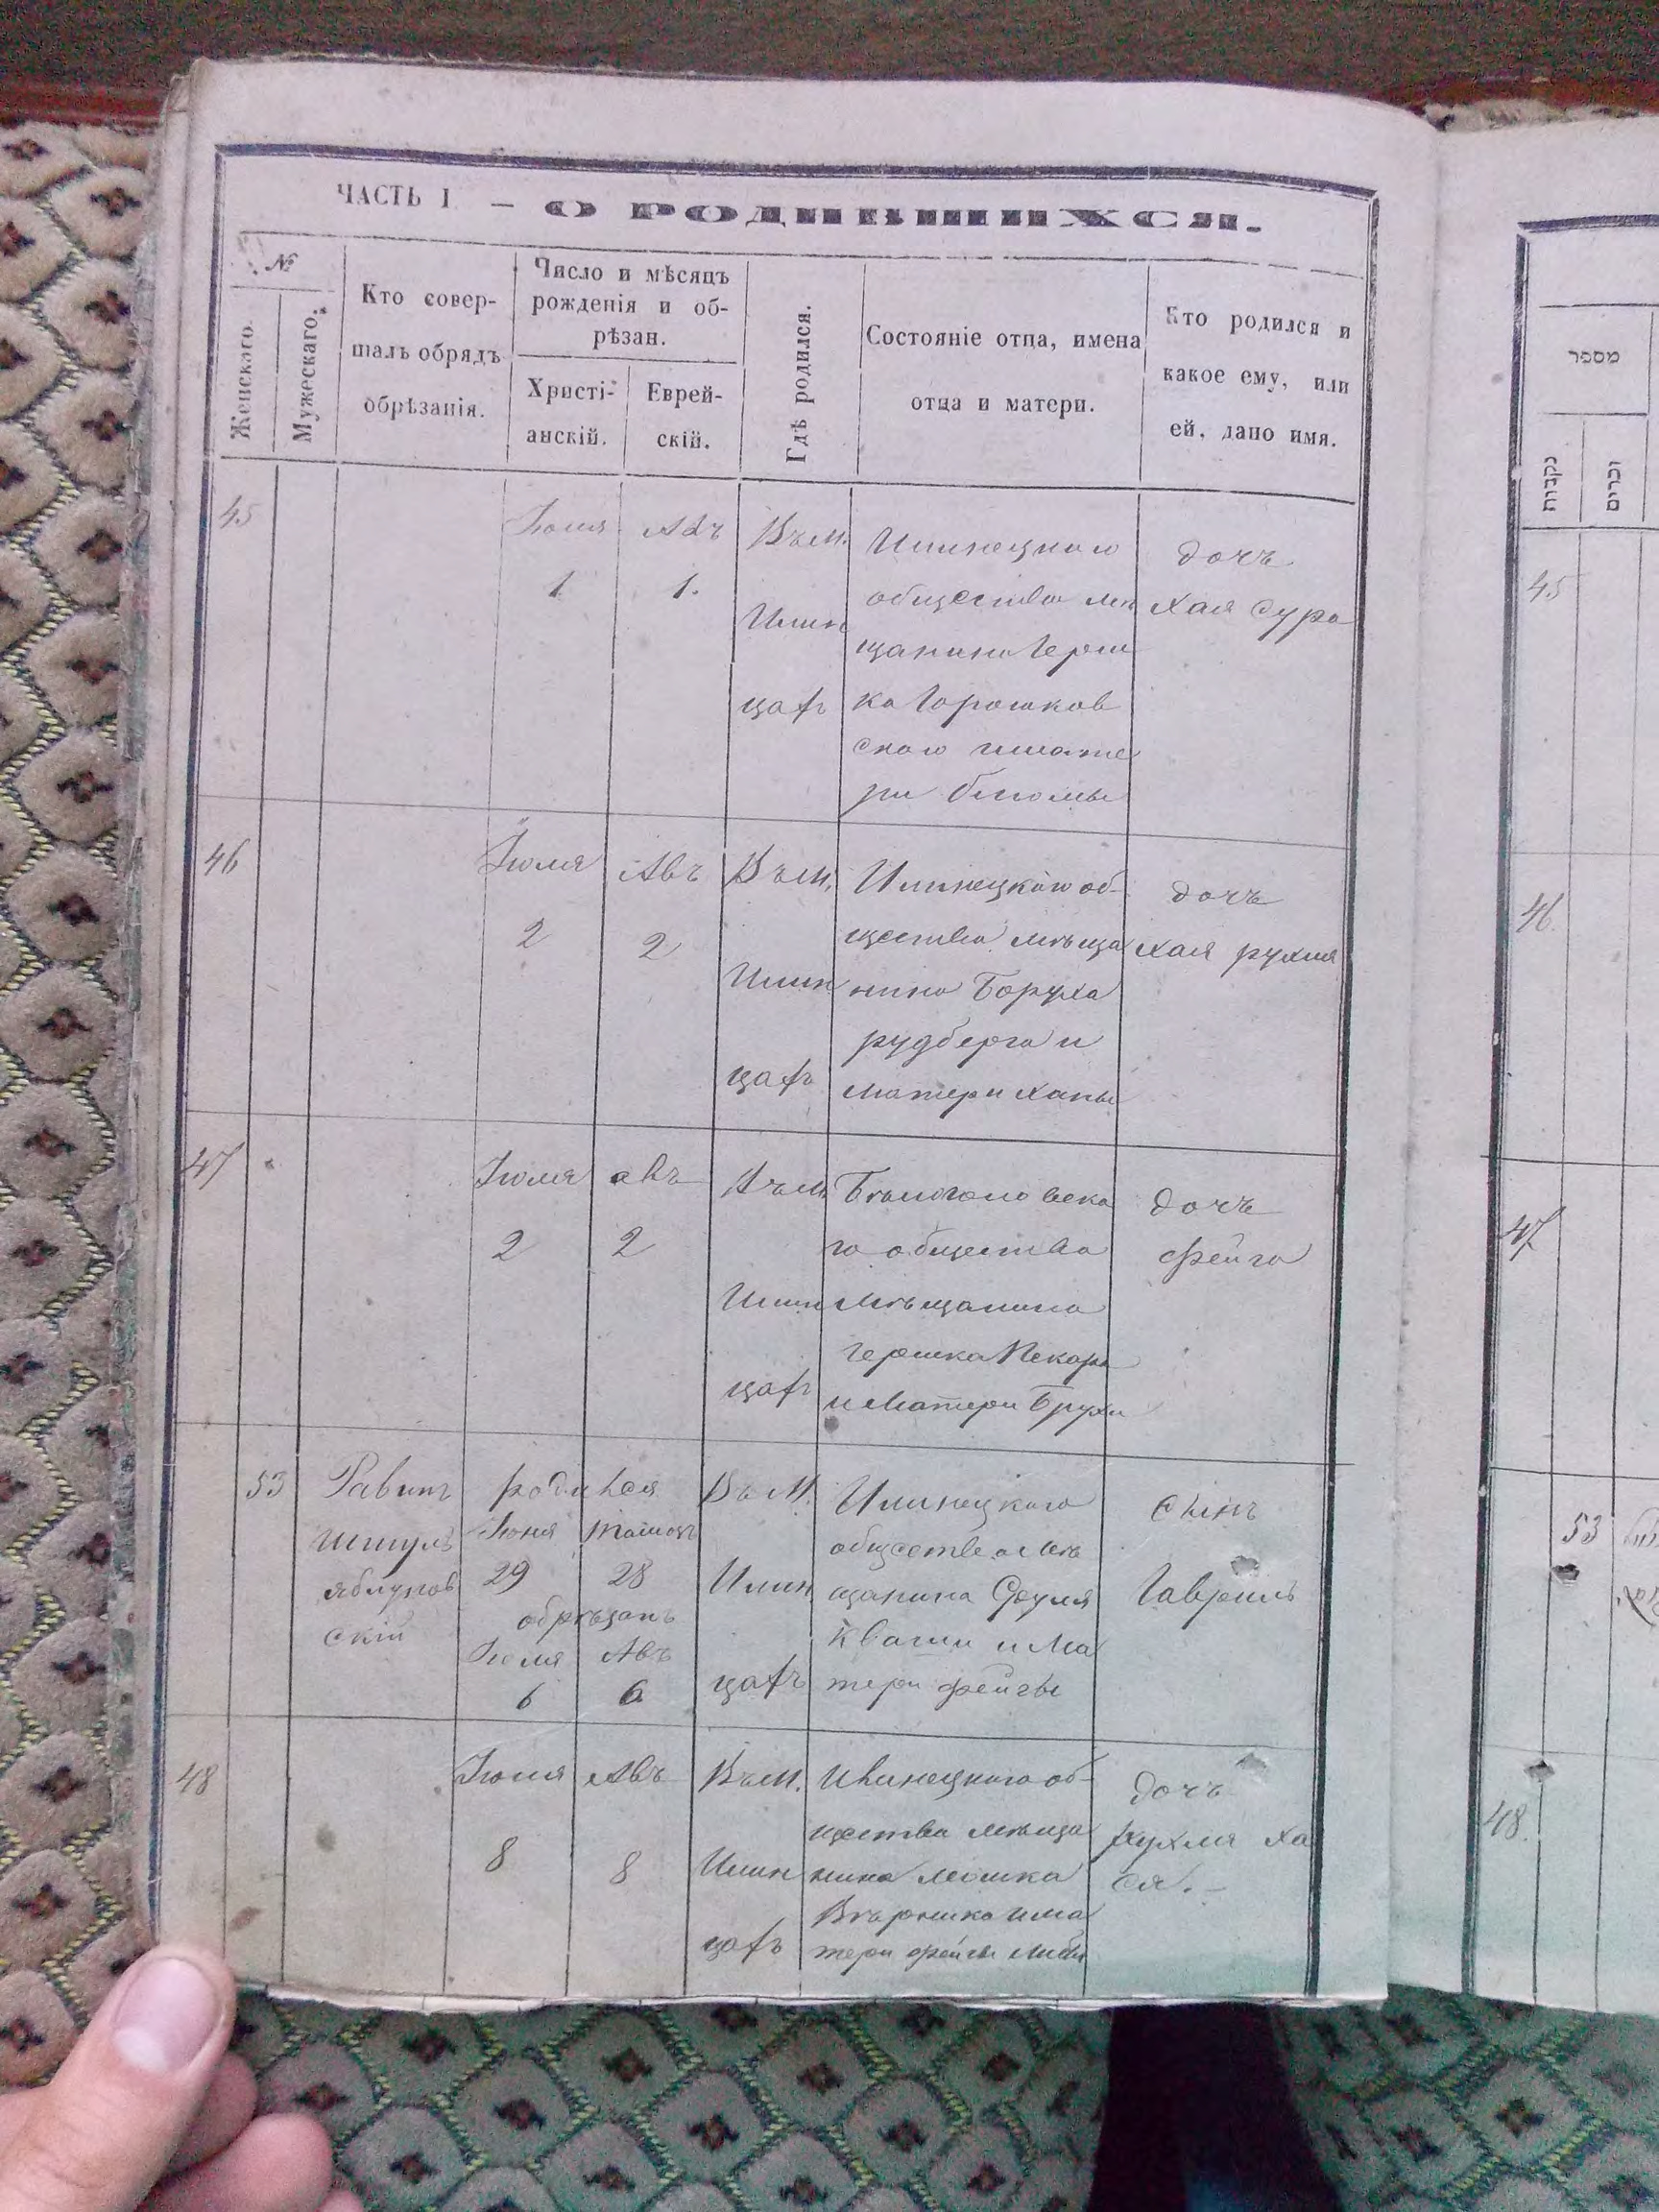 ЧАСТЬ I — О РОДИВШИХСЯ.
№
Женскаго.
Мужескаго.
Кто совер-
шалъ обрядъ
обрѣзанія.
Число и мѣсяцъ
рожденія и об-
рѣзан.
Христі-
анскій.
Еврей-
скій.
Гдѣ родился.
Состояніе отца, имена
отца и матери.
Кто родился и
какое ему, или
ей, дано имя.
45
Іюля
1
Авъ
1.
Въ м.
Илин
цахъ
Илинецкаго
общества мѣ
щанина Герш
ка Горошков
скаго и мате
ри
дочъ
Хая Сура
46
Іюля
2
Авъ
2
Въ м.
Илин
цахъ
Илинецкаго об-
щества мѣща
нина Боруха
рудберга и
матери Ханы
дочъ
Хая рухля
47
Іюля
2
авъ
2
Въ м.
Илин
цахъ
го общества
мѣщанина
Гершка Пекаря
и матери Брухи
дочъ
фейга
53
Равинъ
Шмулъ
яблунов
скій
родился
Іюня
29
28
обрѣзанъ
Іюля
6
Авъ
6
Въ М.
Илин
цахъ
Илинецкаго
общества мѣ
щанина Сруля
Кваши и Ма
тери фейгы
сынъ
Гавріилъ
48
Іюля
8
Авъ
8
Въ м.
Илин
цахъ
Илинецкаго об-
щества мѣща
нина мошка
и ма
тери фейгы
дочъ
рухля ха
ся.—
מספר
נקבות
זכרים
45
46.
47
53
48.